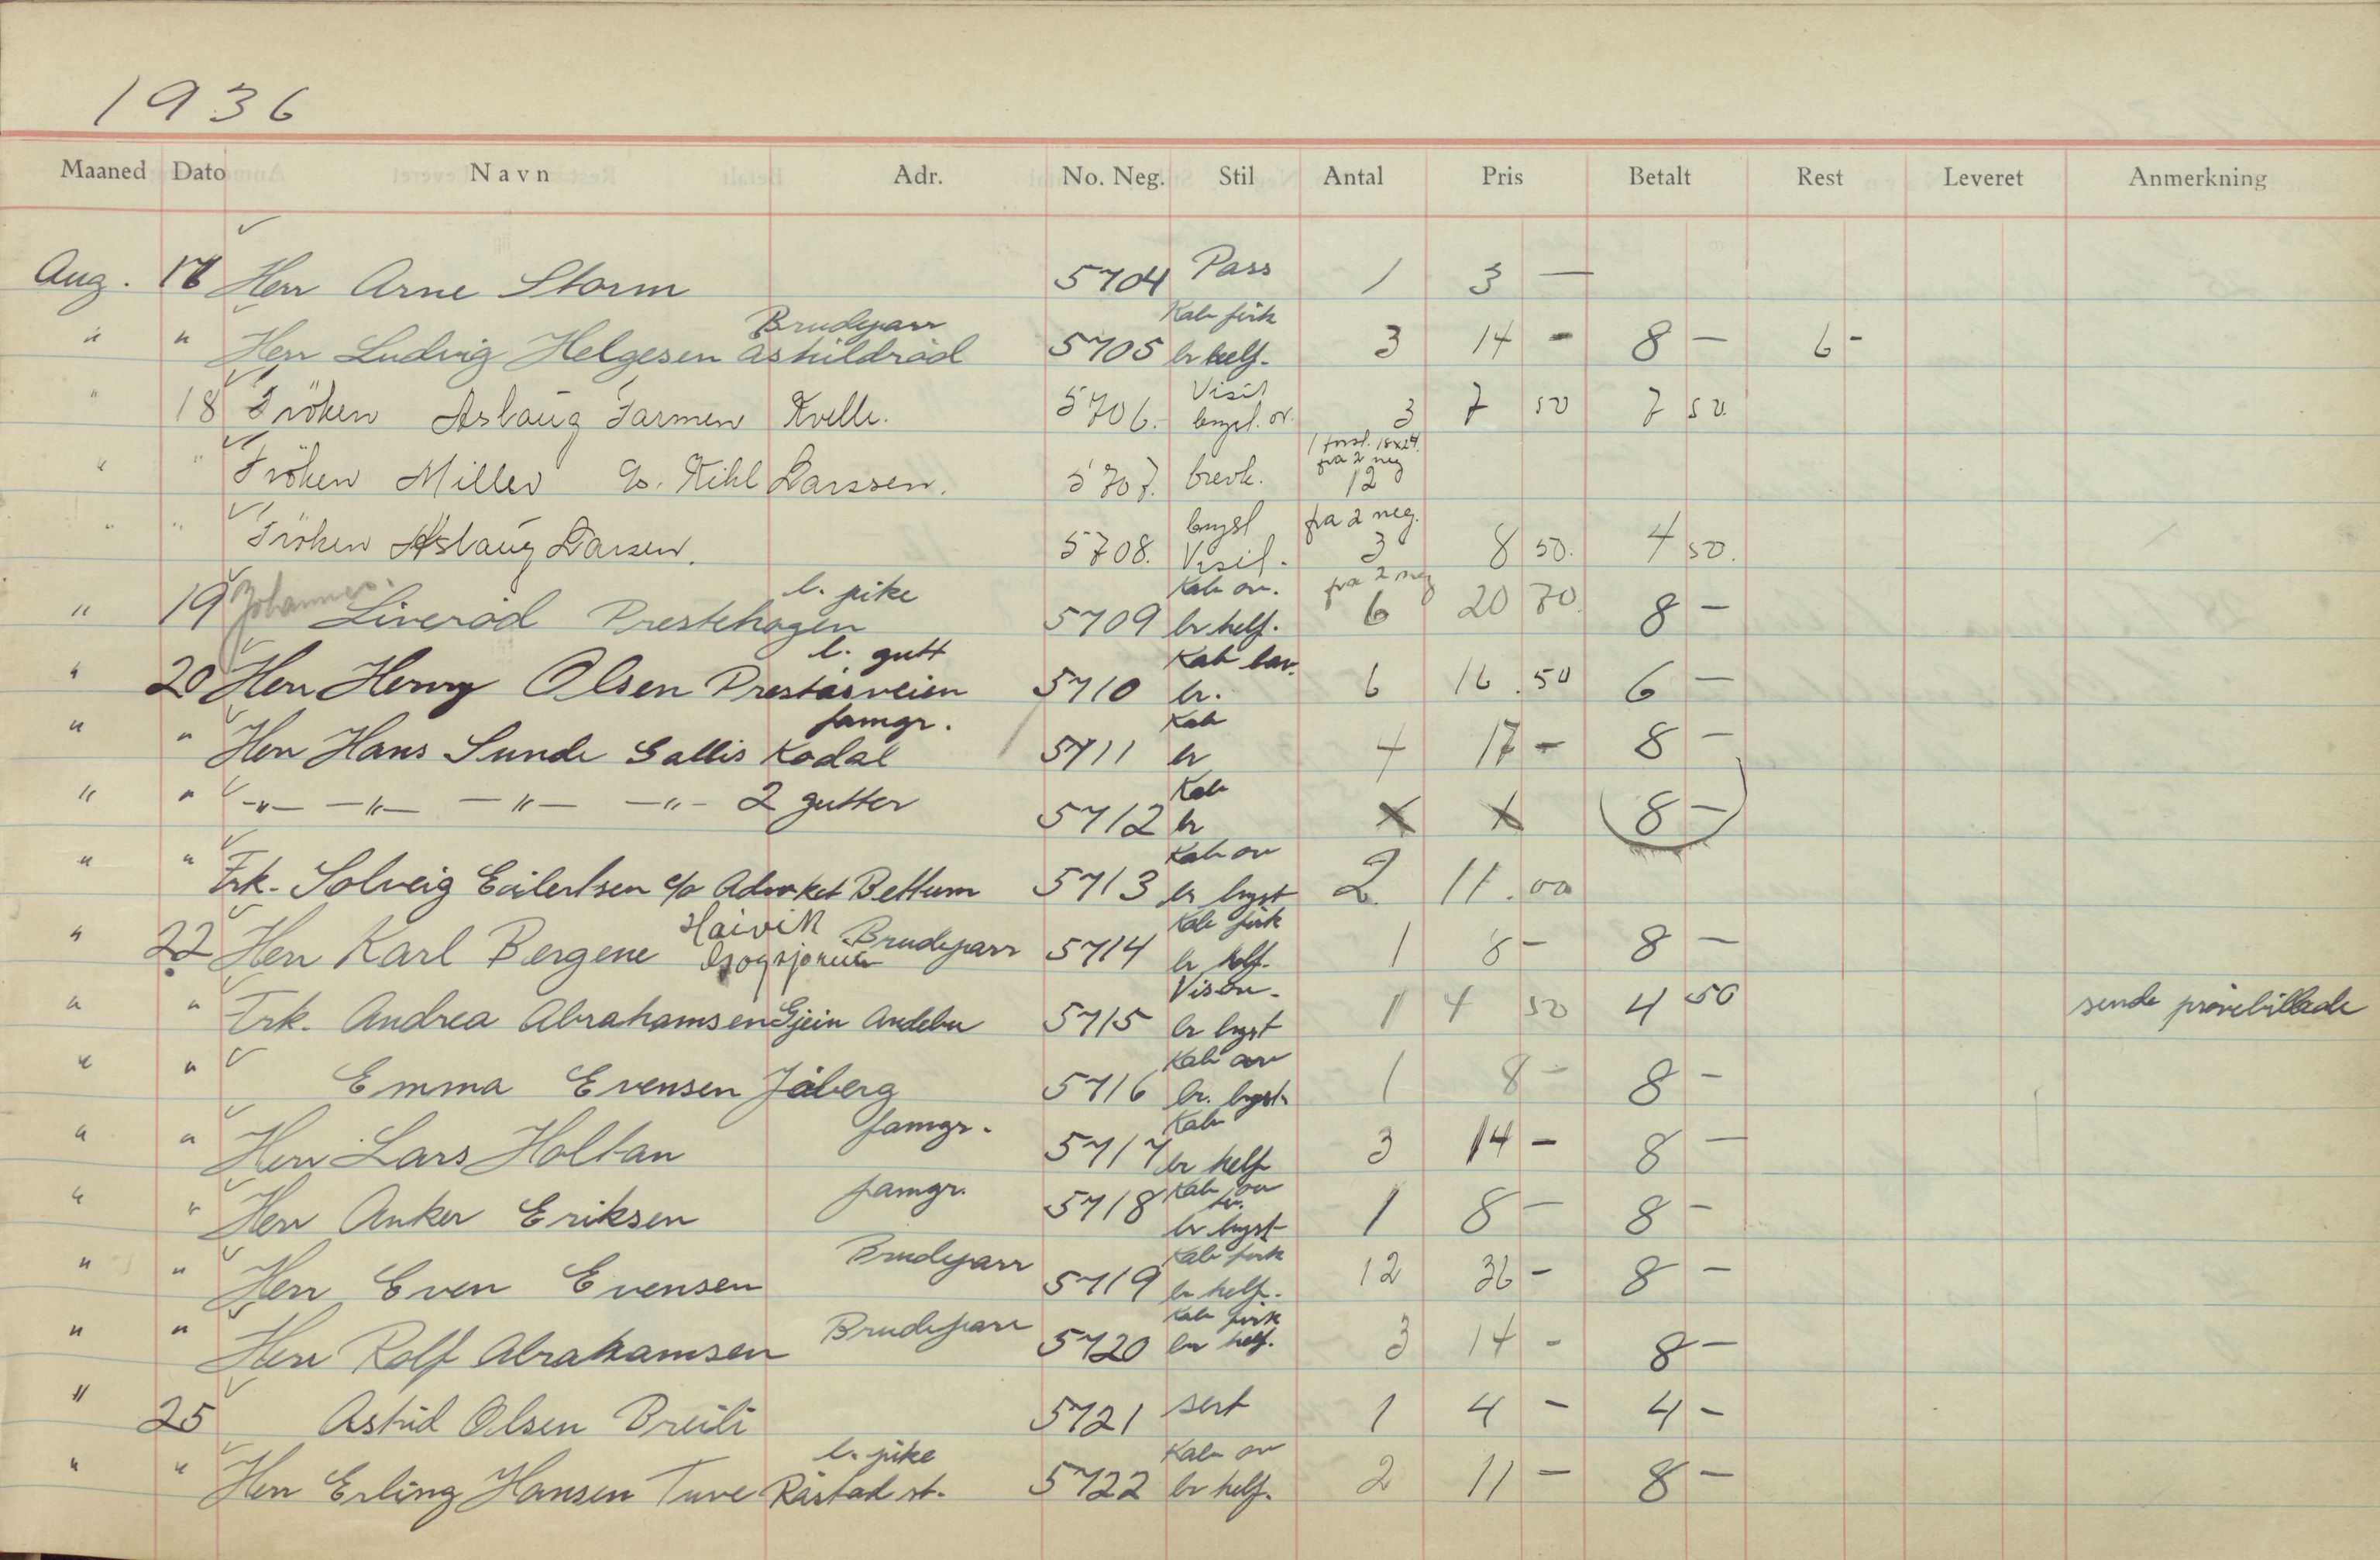 1936
Maaned Dato Navn Adr. No. Neg. Stil Antal Pris Betalt Rest Leveret Anmerkning
Aug. 17 Herr Arne Storm 5704 Pass 1 3 —
Brudepar Kab firk
" " Herr Ludvig Helgesen Askildrød 5705 br helf. 3 14 - 8 — 6 -
Visit
" 18 Fröken Aslaug Farmen Kvelle. 5706. bryst. ov. 3 7 50 7 50.
1 forst. 18x24.
fra 2 neg
" " Fröken Miller c/o. Kihl Larssen. 5707. brevk. 12
bryst fra 2 neg.
" " Fröken Aslaug Larsen. 5708. Visit. 3 8 50. 4 50.
l. pike Kab ov. fra 2 neg
" 19 Johannes Liverød Prestehagen 5709 br helf. 6 20 70. 8 —
l. gutt Kab
" 20 Herr Henry Olsen Preståsveien 5710 br. 6 16.50 6 —
famgr. Kab
" " Herr Hans Sunde Gallis Kodal 5711 br 4 17 - 8 —
Kab
" " -"- -"- -"- -"- 2 gutter 5712 br x x 8 —
Kab ov
" " Frk. Solveig Eilertsen c/o Advoket Bettum 5713 br bryst 2 11.00
Haivik Brudeparr Kab firk
" 22 Herr Karl Bergene 5714 br helf. 1 8 - 8 —
Vis ov.
" " Frk. Andrea Abrahamsen Gjein Andebu 5715 br bryst 1 4 50 4 50 sende prøvebillede
Kab ov
" " Emma Evensen Jåberg 5716 br. bryst. 1 8 - 8 -
famgr. Kab
" " Herr Lars Holtan 5717 br helf 3 14 - 8 —
famgr. Kab ov
" " Herr Anker Eriksen 5718 br bryst 1 8 — 8 -
Brudeparr Kab firk
" " Herr Even Evensen 5719 br helf. 12 36 - 8 -
Brudeparr Kab firk
" " Herr Rolf Abrahamsen 5720 br helf. 3 14 - 8 —
" 25 Astrid Olsen Breili 5721 sert 1 4 - 4 -
l. pike Kab ov
" " Herr Erling Hansen Tuve Råstad st. 5722 br helf. 2 11 — 8 -